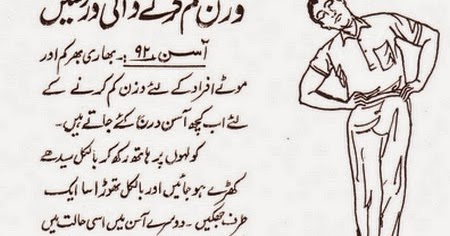 وزن کم کرنے والی ورزشیں
آسن ۹۲ :۔ بھاری بھرکم اور
موٹے افراد کے لئے وزن کم کرنے کے
لئے اب کچھ آسن درج کئے جاتے ہیں۔
کولہوں پر ہاتھ رکھ کر بالکل سیدھے
کھڑے ہو جائیں اور بالکل تھوڑا سا ایک
طرف جھکیں۔ دوسرے آسن میں اسی حالت میں